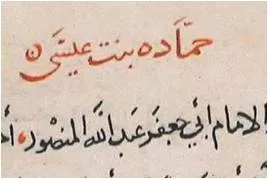 حمّاده بنت عيسَى
الامام أبي جعفر عبد اللَّه المنصُور،